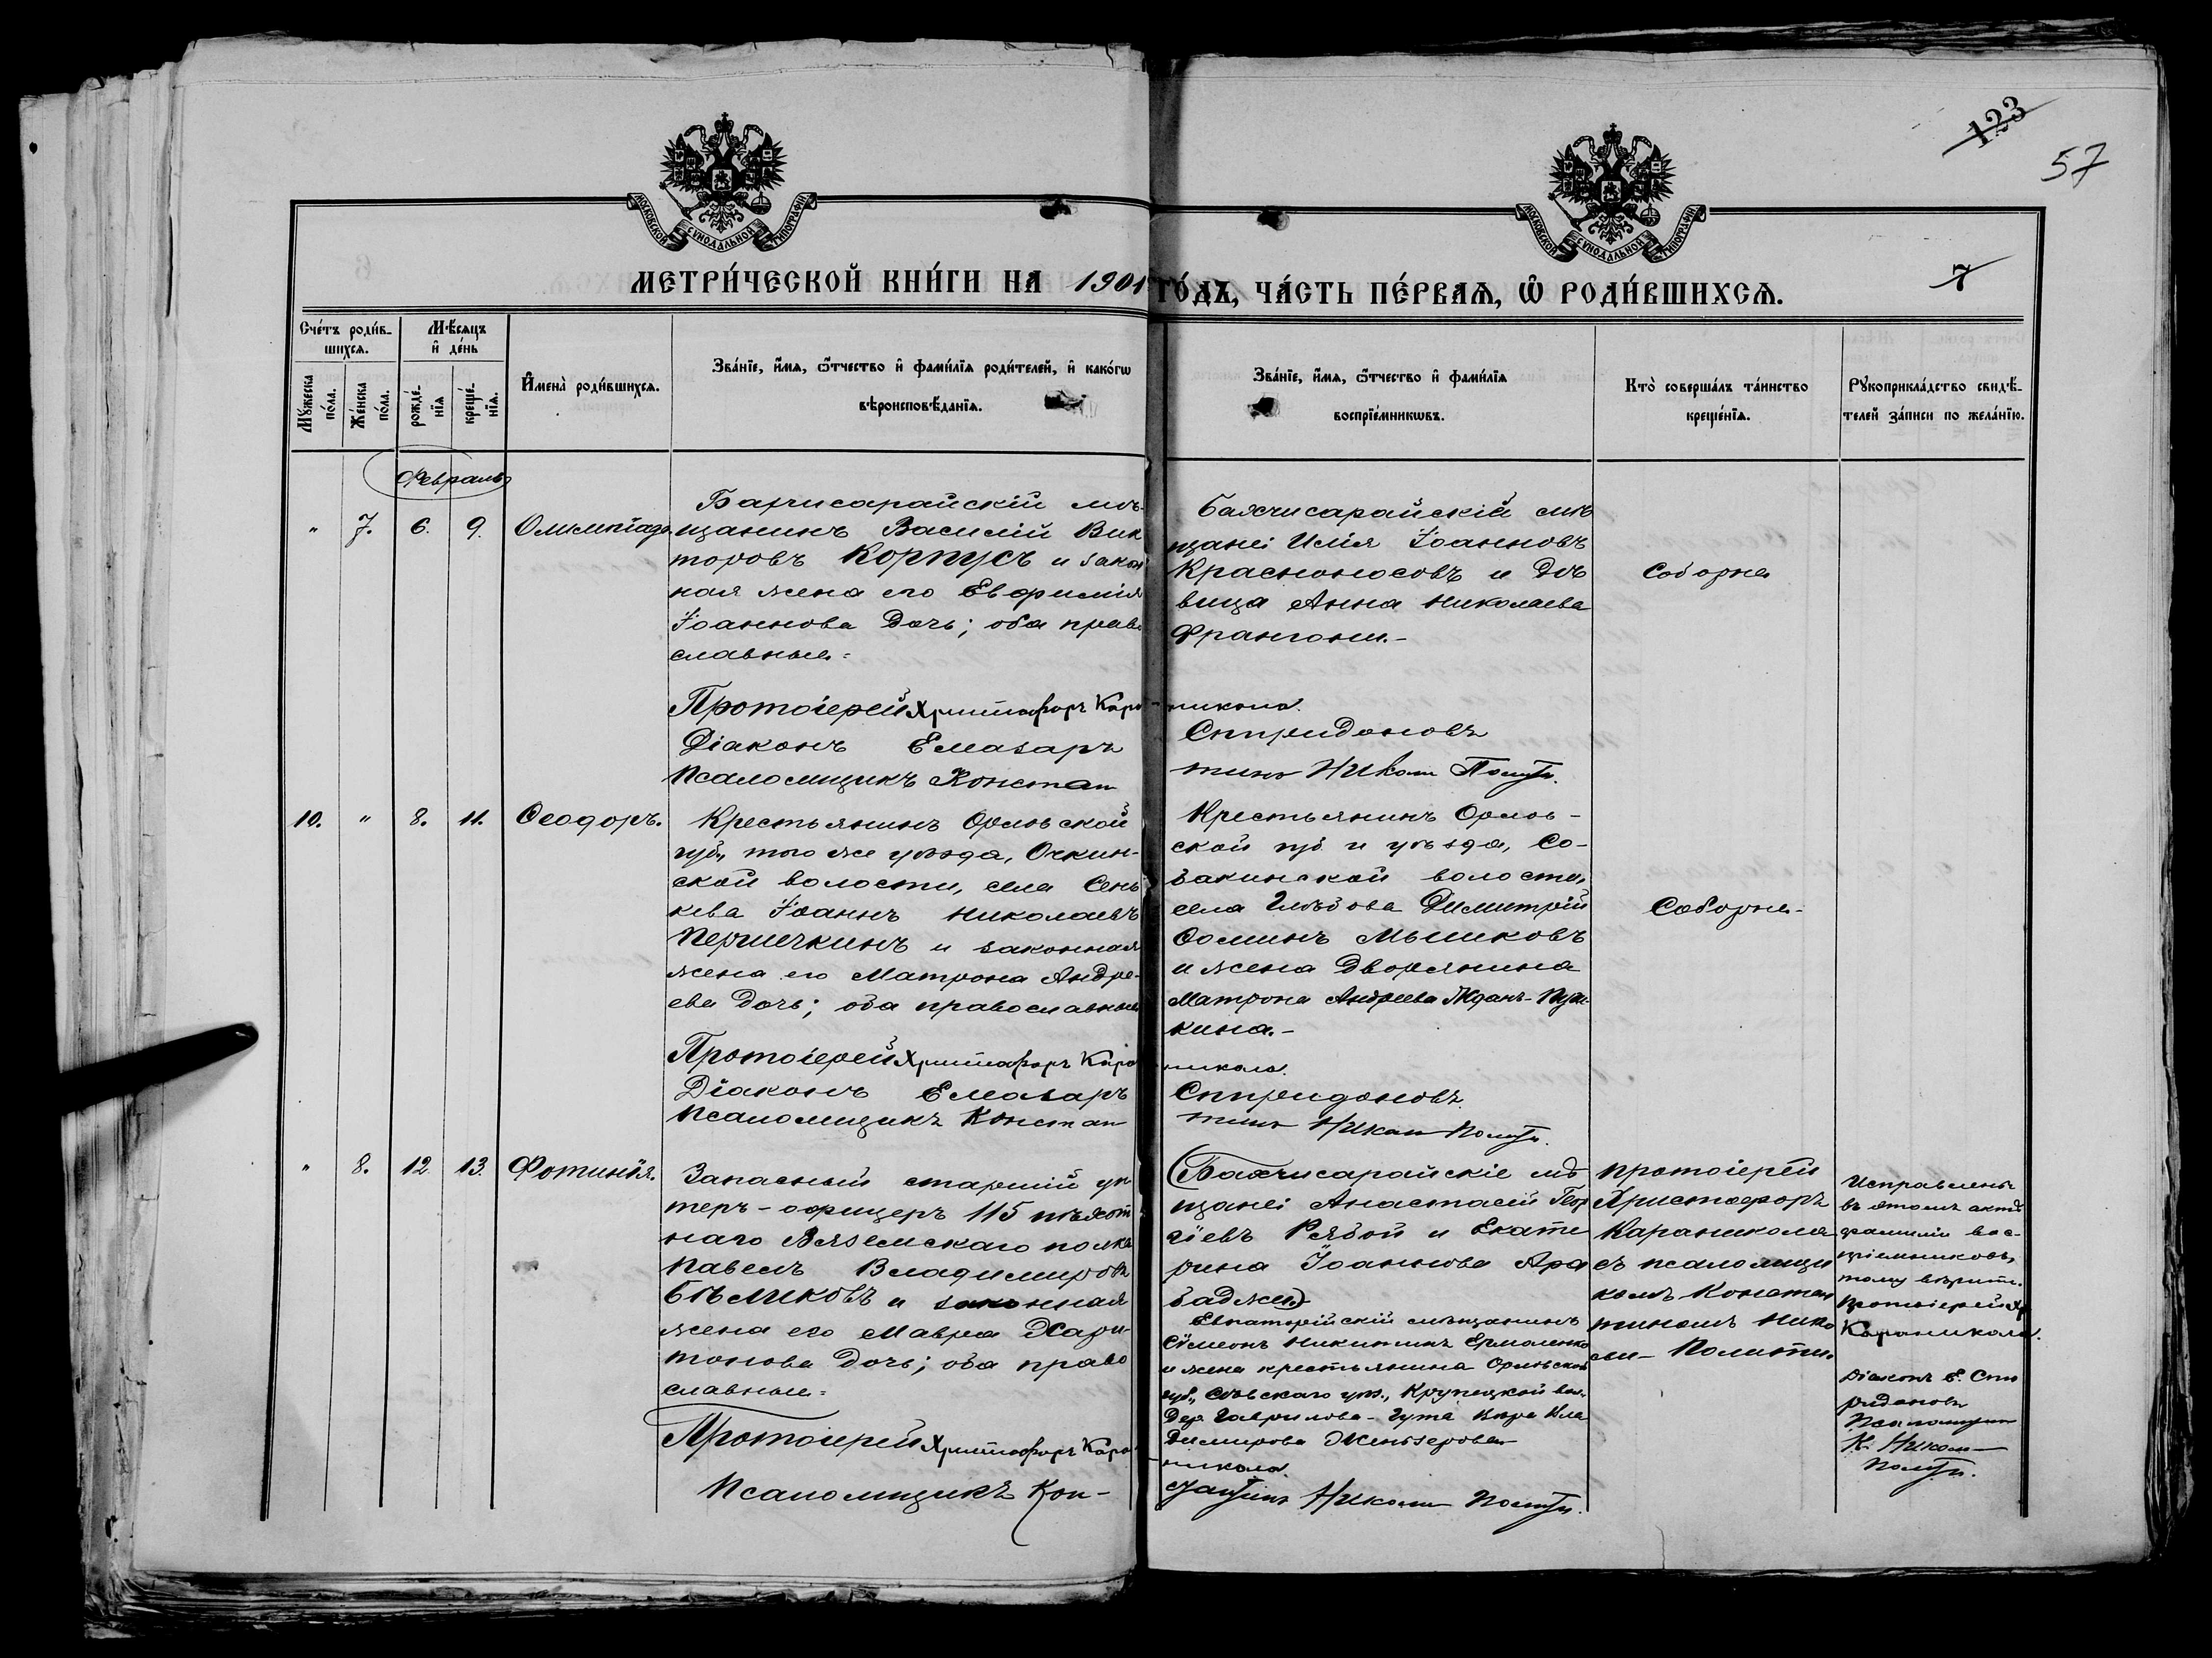 123
57
МОСКОВСКОЙ СѴНОДАЛЬНОЙ ТИПОГРАФІИ
МОСКОВСКОЙ СѴНОДАЛЬНОЙ ТИПОГРАФІИ
МЕТРИ́ЧЕСКОЙ КНИ́ГИ НА 1901 ГО́ДЪ, ЧА́СТЬ ПЕ́РВАѦ, Ѽ РОДИ́ВШИХСѦ.
7
Сче́тъ роди́в-
шихсѧ.
Мꙋ́жеска
по́ла.
Же́нска
по́ла.
Мѣ́сѧцъ
и҆ де́нь
рожде́-
нїѧ
креще́-
нїѧ.
И҆мена̀ роди́вшихсѧ.
Зва́нїе, и҆́мѧ, ѻ҆́тчество и҆ фами́лїѧ роди́телей, и҆ како́гѡ
вѣроисповѣ́данїѧ.
Зва́нїе, и҆́мѧ, ѻ҆́тчество и҆ фами́лїѧ
воспрїе́мникѡвъ.
Кто̀ соверша́лъ та́инство
креще́нїѧ.
Рꙋкоприкла́дство свидѣ́-
телей за́писи по жела́нїю.
Февраль
" 7. 6. 9. Олимпіада.
Бахчисарайскій мѣ-
щанинъ Василій Вик
торовъ Корпусъ и закон
ная жена его Евфимія
Іоаннова дочь; оба право
славные.
Бахчисарайскій мѣ
щане: Илія Іоанновъ
Красноносовъ и дѣ
вица Анна Николаева
Франгони.-
Соборне
Протоіерей Христофоръ Кара-никола.
Діаконъ Елазаръ Спиридоновъ
Псаломщикъ Констан тинъ Николи Полити.
10. " 8. 11. Ѳеодоръ.
Крестьянинъ Орловской
губ., того же уѣзда, Очкин-
ской волости, села Сень
кева Іоаннъ Николаевъ
Першечкинъ и законная
жена его Матрона Андре-
ева дочь; оба православные
Крестьянинъ Орлов-
ской губ. и уѣзда, Со-
закинской волости,
села Глѣбова Димитрій
Ѳоминъ Мышковъ
и жена дворянина
Матрона Андреева Жданъ-Пуш-
кина.-
Соборне-
Протоіерей Христофоръ Кара никола.
Діаконъ Елазаръ Спиридоновъ.
Псаломщикъ Констан тинъ Николи Полити.
" 8. 12. 13. Фотинія.
Запасный старшій ун
теръ-офицеръ 115 пѣхот
наго Вяземскаго полка
Павелъ Владимировъ
Бѣликовъ и законная
жена его Мавра Хари-
тонова дочь; оба право
славные.
(Бахчисарайскіе мѣ
щане: Анастасій Геор
гіевъ Рябой и Екате
рина Іоаннова Ара
баджи)
Евпаторійскій мѣщанинъ
Сѵмеонъ Никитинъ Ермоленко
и жена крестьянина Орловской
губ., Сѣвскаго уѣз., Крупецкой вол.
дер. Гаврилова-Гута Вѣра Вла
димирова
протоіерей
Христофоръ
Караникола
съ псаломщи
комъ Констан
тиномъ Нико
ли-Полити.
Исправлены
въ этомъ актѣ
фамиліи вос-
пріемниковъ,
тому вѣрить.
Протоіерей Хр
Караникола.
Діаконъ Е. Спи
ридоновъ
Псаломщикъ
К. Николи
Полити.
Протоіерей Христофоръ Кара-никола.
Псаломщикъ Кон-стантинъ Николи Полити.